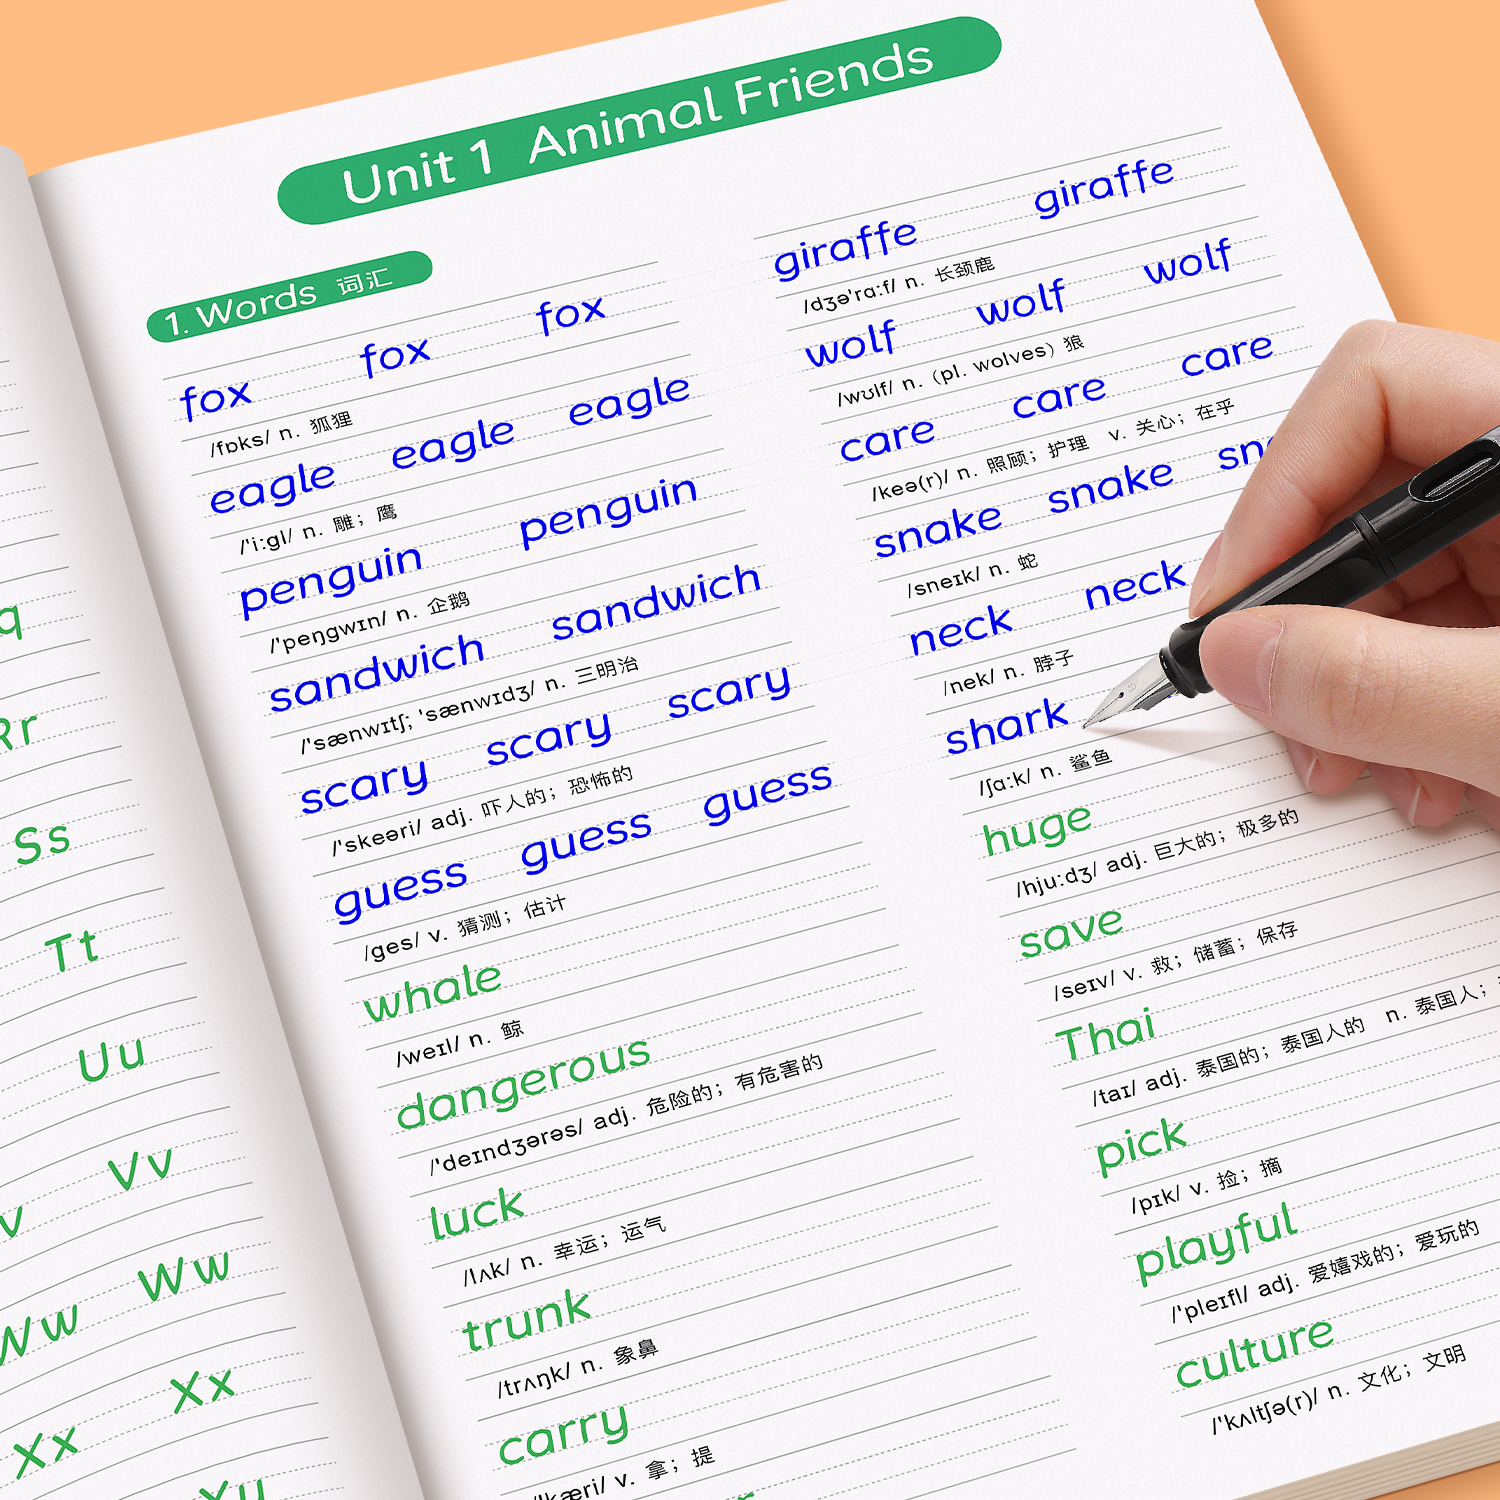 Unit 1 Animal Friends
1. Words 词汇
fox fox fox
/fɒks/ n. 狐狸
eagle eagle eagle
/'i:gl/ n. 雕；鹰
penguin penguin
/'peŋgwɪn/ n. 企鹅
sandwich sandwich
/'sænwɪtʃ; 'sænwɪdʒ/ n. 三明治
scary scary scary
/'skeəri/ adj. 吓人的；恐怖的
guess guess guess
/ges/ v. 猜测；估计
whale
/weɪl/ n. 鲸
dangerous
/'deɪndʒərəs/ adj. 危险的；有危害的
luck
/lʌk/ n. 幸运；运气
trunk
/trʌŋk/ n. 象鼻
carry
/'kæri/ v. 拿；提
giraffe giraffe
/dʒə'rɑ:f/ n. 长颈鹿
wolf wolf wolf
/wʊlf/ n. (pl. wolves) 狼
care care care
/keə(r)/ n. 照顾；护理 v. 关心；在乎
snake snake sna
/sneɪk/ n. 蛇
neck neck
/nek/ n. 脖子
shark
/ʃɑ:k/ n. 鲨鱼
huge
/hju:dʒ/ adj. 巨大的；极多的
save
/seɪv/ v. 救；储蓄；保存
Thai
/taɪ/ adj. 泰国的；泰国人的 n. 泰国人；
pick
/pɪk/ v. 捡；摘
playful
/'pleɪfl/ adj. 爱嬉戏的；爱玩的
culture
/'kʌltʃə(r)/ n. 文化；文明
q
Rr
Ss
Tt
Uu
v Vv
Ww Ww
Xx Xx